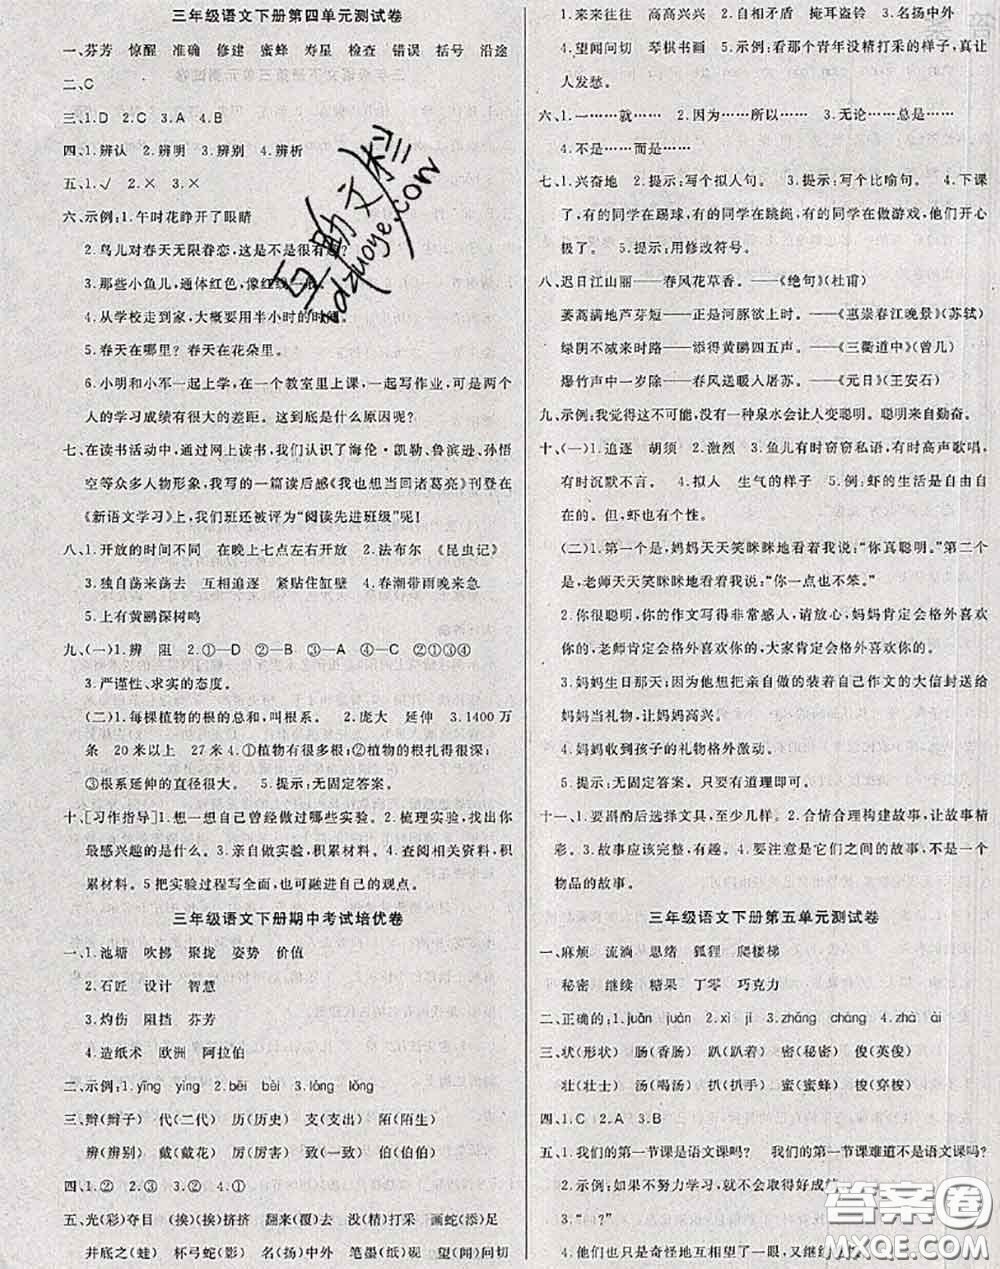 三年级语文下册第四单元测试卷
一、芬芳 惊醒 准确 修建 蜜蜂 寿星 检查 错误 括号 沿途
二、C
三、1.D 2.C 3.A 4.B
四、1.辨认 2.辨明 3.辨别 4.辨析
五、1.√ 2.× 3.×
六、示例:1.午时花睁开了眼睛
2.鸟儿对春天无限眷恋,这是不是很有
3.那些小鱼儿,通体红色,像红线一般。
4.从学校走到家,大概要用半小时的时间。
5.春天在哪里?春天在花朵里。
6.小明和小军一起上学,在一个教室里上课,一起写作业,可是两个
人的学习成绩有很大的差距。这到底是什么原因呢?
七、在读书活动中,通过网上读书,我们认识了海伦·凯勒、鲁滨逊、孙悟
空等众多人物形象,我写的一篇读后感《我也想当回诸葛亮》刊登在
《新语文学习》上,我们班还被评为“阅读先进班级”呢!
八、1.开放的时间不同 在晚上七点左右开放 2.法布尔 《昆虫记》
3.独自荡来荡去 互相追逐 紧贴住缸壁 4.春潮带雨晚来急
5.上有黄鹂深树鸣
九、(一)1.辨 阻 2.①—D ②—B ③—A ④—C ①③④
3.严谨性、求实的态度。
(二)1.每棵植物的根的总和,叫根系。 2.庞大 延伸 3.1400万
条 20米以上 27米 4.①植物有很多根;②植物的根扎得很深;
③根系延伸的直径很大。 5.提示:无固定答案。
十、[习作指导]1.想一想自己曾经做过哪些实验。2.梳理实验,找出你
最感兴趣的是什么。3.亲自做实验,积累材料。4.查阅相关资料,积
累材料。5把实验过程写全面,也可融进自己的观点。
三年级语文下册期中考试培优卷
一、1.池塘 吹拂 聚拢 姿势 价值
2.石匠 设计 智慧
3.灼伤 阻挡 芬芳
4.造纸术 欧洲 阿拉伯
二、示例:1.yīng yíng 2.bēi bèi 3.lóng lǒng
三、辫(辫子) 代(二代) 历(历史) 支(支出) 陌(陌生)
辨(辨别) 戴(戴花) 厉(厉害) 致(一致) 陋(简陋)
四、1.② 2.③ 3.② 4.①
五、光(彩)夺目 (挨)(挨)挤挤 翻来(覆)去 没(精)打采 画蛇(添)足
井底之(蛙) 杯弓蛇(影) 名(扬)中外 笔墨(纸)砚 望(闻)问切
1.来来往往 高高兴兴 2.守株待兔 亡羊补牢 掩耳盗铃 3.名扬中外
4.望闻问切 琴棋书画 5.示例:看那个青年没精打采的样子,真让
人发愁。
六、1.一……就…… 2.因为……所以…… 3.无论……总是……
4.不是……而是……
七、1.兴奋地 2.提示:写个拟人句。 3.提示:写个比喻句。 4.下课
了,有的同学在踢球,有的同学在跳绳,有的同学在做游戏,他们开心
极了。 5.提示:用修改符号。
八、迟日江山丽——春风花草香。《绝句》(杜甫)
蒌蒿满地芦芽短——正是河豚欲上时。——《惠崇春江晚景》(苏轼)
绿阴不减来时路——添得黄鹂四五声。——《三衢道中》(曾几)
爆竹声中一岁除——春风送暖入屠苏。——《元日》(王安石)
九、示例:我觉得这不可能,没有一种泉水会让人变聪明。聪明来自勤奋。
十、(一)1.追逐 胡须 2.激烈 3.鱼儿有时窃窃私语,有时高声歌唱,
有时沉默不言。 4.拟人 生气的样子 5.例:虾的生活是自由自
在的。但虾也有个性。
(二)1.第一个是,妈妈天天笑眯眯地看着我说:“你真聪明。”第二个
是,老师天天笑眯眯地看着我说:“你一点也不笨。”
2.你很聪明,你的作文写得非常感人,请放心,妈妈肯定会格外喜欢
你的,老师肯定会格外喜欢你的,大家肯定会格外喜欢你的。
3.妈妈生日那天;我把一个亲自做的装着自己作文的大信封送给
妈妈当礼物,让妈妈高兴。
4.妈妈收到孩子的礼物格外激动。
5.提示:无固定答案。只要有道理即可。
十一、1.要斟酌后选择文具,至少几样。 2.合情合理构建故事,让故事精
彩。3.故事应该完整,有趣。4.要注意是它们之间的故事,不是一个
物品的故事。
三年级语文下册第五单元测试卷
一、麻烦 流淌 思绪 狐狸 爬楼梯
秘密 继续 糖果 丁零 巧克力
二、正确的:1.juǎn juàn 2.xì jì 3.zhāng cháng 4.zhá ài
三、状(形状) 肠(香肠) 趴(趴着) 密(秘密) 俊(英俊)
壮(壮士) 汤(喝汤) 扒(扒手) 蜜(蜜蜂) 梭(穿梭)
四、1.C 2.A 3.B
五、1.我们的第一节课是语文课吗? 我们的第一节课难道不是语文课吗?
2.示例:如果不努力学习,就不会取得好成
3.“ ?”
4.他们也只是奇怪地互相对望了一眼,又继续
互助文栏
dzuoye.com
答案圈
MXQE.COM